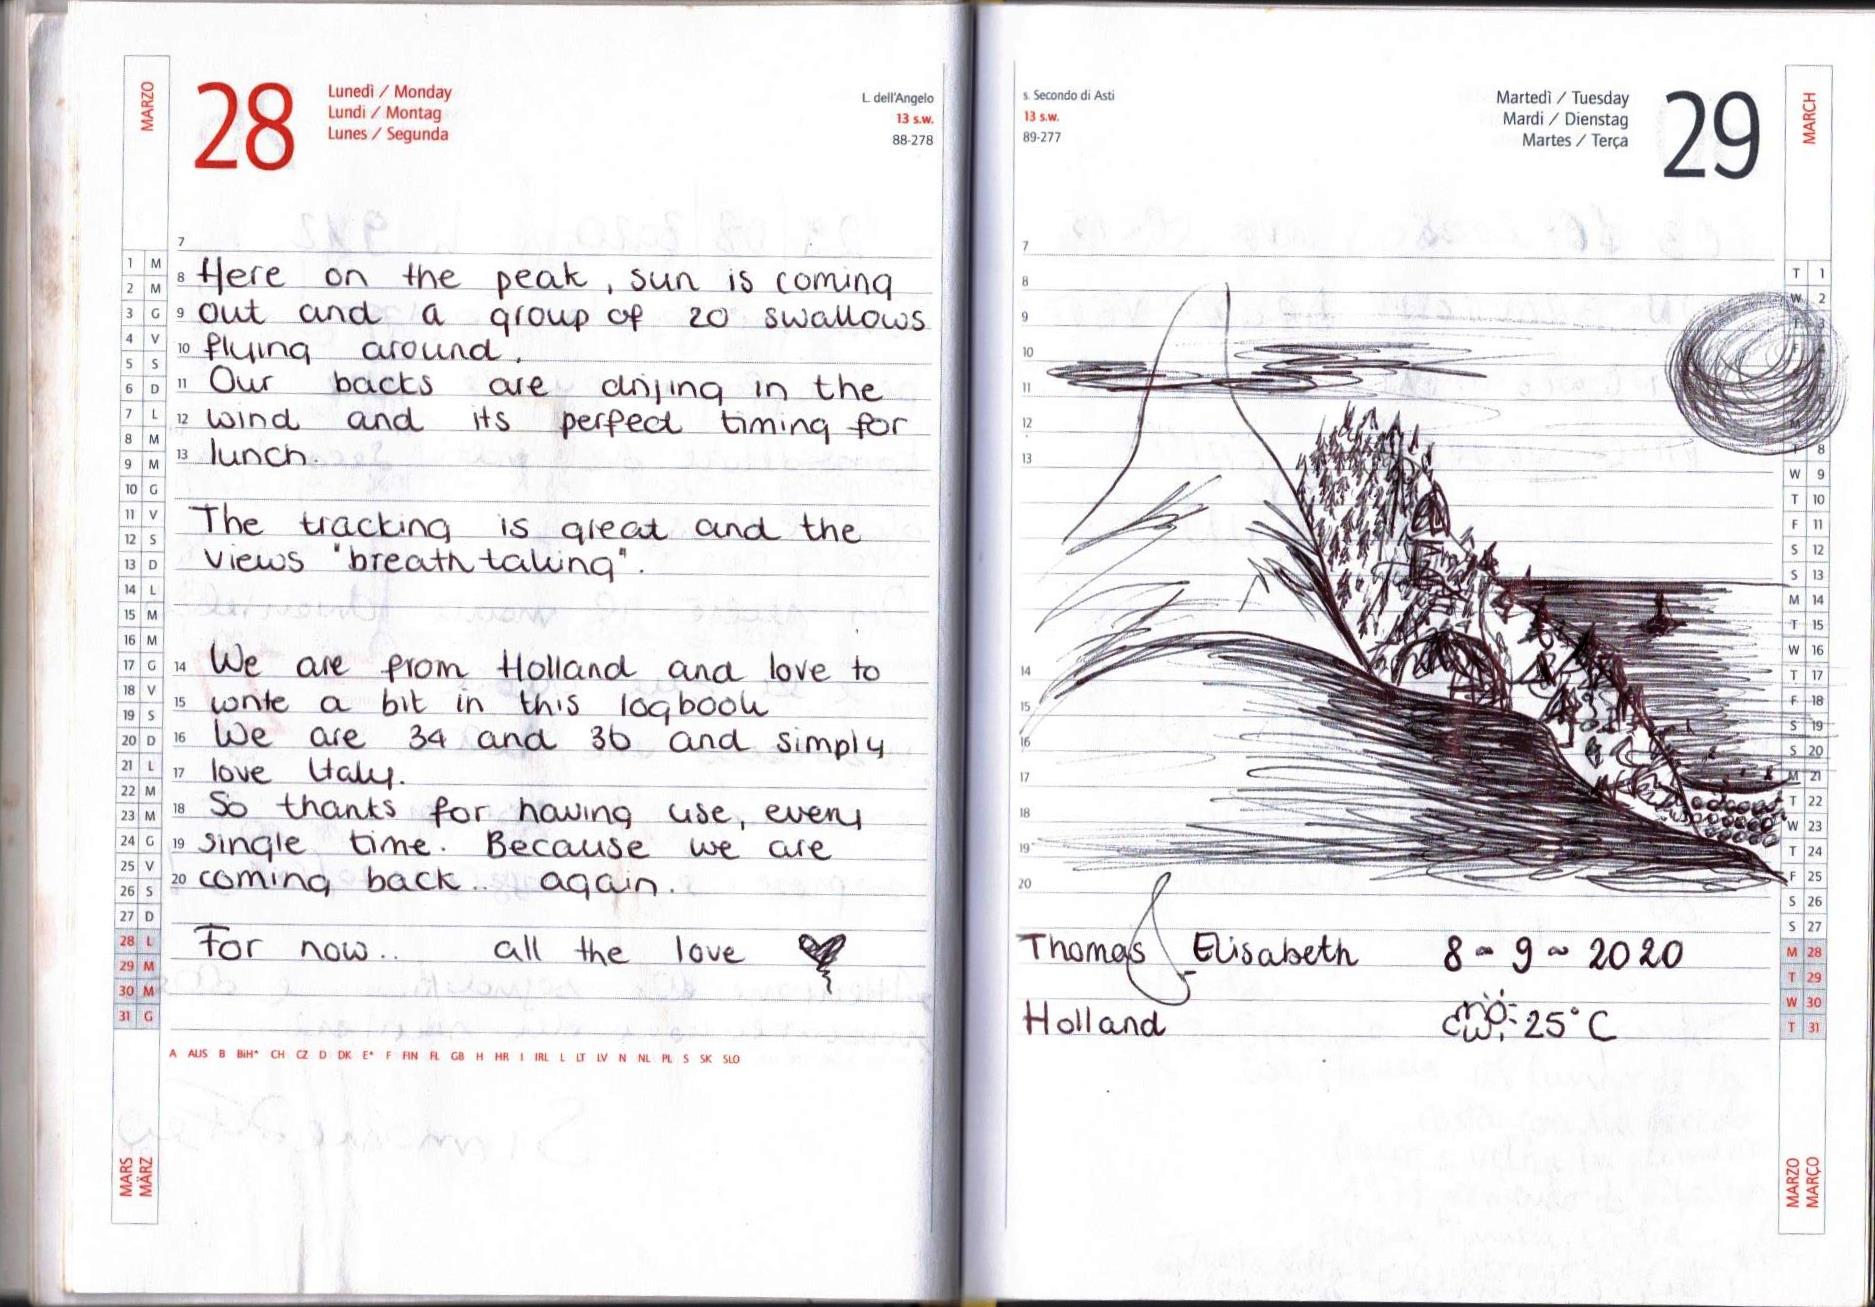 MARZO
28
Lunedì / Monday
Lundi / Montag
Lunes / Segunda
L. dell'Angelo
13 s.w.
88-278
7
8 Here on the peak, sun is coming
9 out and a group of 20 swallows
10 flying around.
11 Our backs are drijing in the
12 wind and its perfect timing for
13 lunch.
The tracking is great and the
views "breath taking".
14 We are from Holland and love to
15 write a bit in this logbook
16 We are 34 and 36 and simply
17 love Italy.
18 So thanks for having use, every
19 single time. Because we are
20 coming back.. again.
For now.. all the love
1 M
2 M
3 G
4 V
5 S
6 D
7 L
8 M
9 M
10 G
11 V
12 S
13 D
14 L
15 M
16 M
17 G
18 V
19 S
20 D
21 L
22 M
23 M
24 G
25 V
26 S
27 D
28 L
29 M
30 M
31 G
A AUS B BiH* CH CZ D DK E* F FIN FL GB H HR I IRL L LT LV N NL PL S SK SLO
MARS
MÄRZ
s. Secondo di Asti
13 s.w.
89-277
Martedì / Tuesday
Mardi / Dienstag
Martes / Terça
29
MARCH
7
8
9
10
11
12
13
14
15
16
17
18
19
20
Thomas & Elisabeth 8-9-2020
Holland 25°C
T 1
W 2
T 3
F 4
M
T 8
W 9
T 10
F 11
S 12
S 13
M 14
T 15
W 16
T 17
F 18
S 19
S 20
M 21
T 22
W 23
T 24
F 25
S 26
S 27
M 28
T 29
W 30
T 31
MARZO
MARÇO